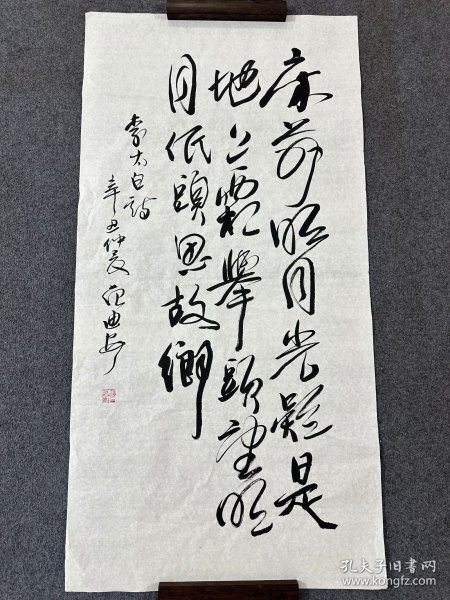 床前明月光疑是
地上霜舉頭望明
月低頭思故鄉
李太白詩
辛丑仲夏
孔夫子旧书网
www.kongfz.com